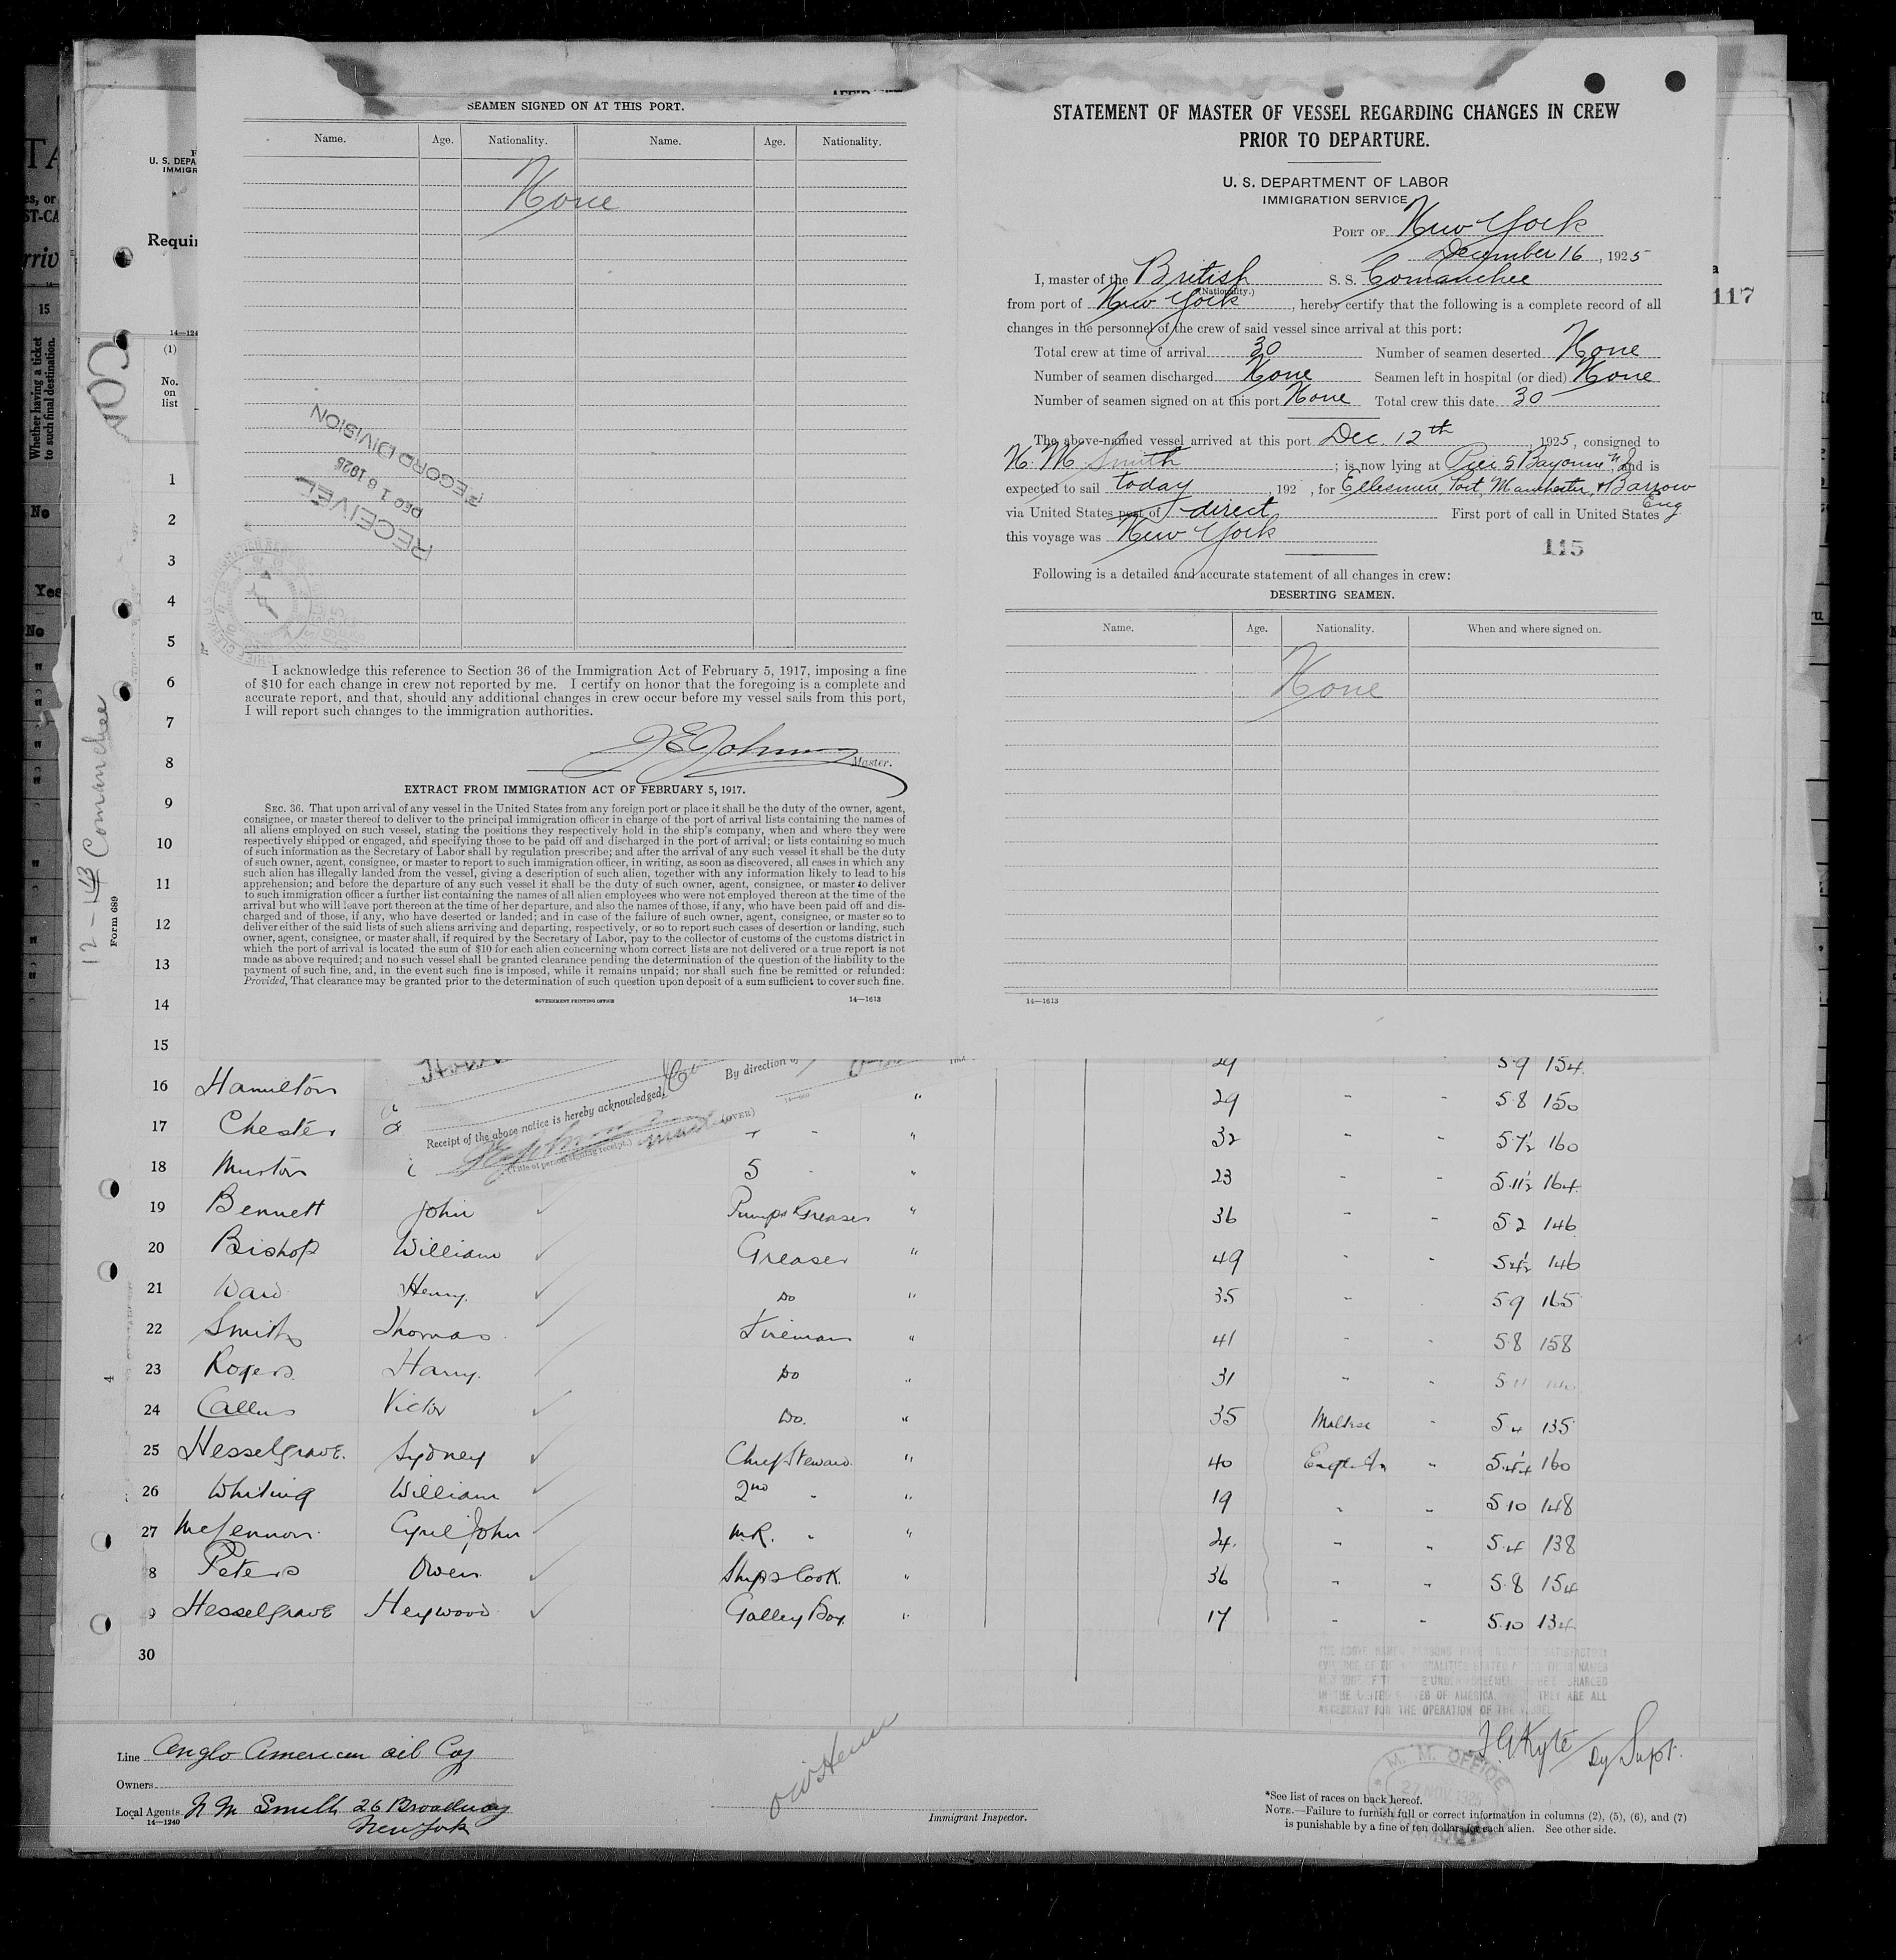 SEAMEN SIGNED ON AT THIS PORT.
Name. Age. Nationality. Name. Age. Nationality.
None
RECEIVED
DEC 16 1925
RECORD DIVISION
I acknowledge this reference to Section 36 of the Immigration Act of February 5, 1917, imposing a fine
of $10 for each change in crew not reported by me. I certify on honor that the foregoing is a complete and
accurate report, and that, should any additional changes in crew occur before my vessel sails from this port,
I will report such changes to the immigration authorities.
Master.
EXTRACT FROM IMMIGRATION ACT OF FEBRUARY 5, 1917.
SEC. 36. That upon arrival of any vessel in the United States from any foreign port or place it shall be the duty of the owner, agent,
consignee, or master thereof to deliver to the principal immigration officer in charge of the port of arrival lists containing the names of
all aliens employed on such vessel, stating the positions they respectively hold in the ship's company, when and where they were
respectively shipped or engaged, and specifying those to be paid off and discharged in the port of arrival; or lists containing so much
of such information as the Secretary of Labor shall by regulation prescribe; and after the arrival of any such vessel it shall be the duty
of such owner, agent, consignee, or master to report to such immigration officer, in writing, as soon as discovered, all cases in which any
such alien has illegally landed from the vessel, giving a description of such alien, together with any information likely to lead to his
apprehension; and before the departure of any such vessel it shall be the duty of such owner, agent, consignee, or master to deliver
to such immigration officer a further list containing the names of all alien employees who were not employed thereon at the time of the
arrival but who will leave port thereon at the time of her departure, and also the names of those, if any, who have been paid off and dis-
charged and of those, if any, who have deserted or landed; and in case of the failure of such owner, agent, consignee, or master so to
deliver either of the said lists of such aliens arriving and departing, respectively, or so to report such cases of desertion or landing, such
owner, agent, consignee, or master shall, if required by the Secretary of Labor, pay to the collector of customs of the customs district in
which the port of arrival is located the sum of $10 for each alien concerning whom correct lists are not delivered or a true report is not
made as above required; and no such vessel shall be granted clearance pending the determination of the question of the liability to the
payment of such fine, and, in the event such fine is imposed, while it remains unpaid; nor shall such fine be remitted or refunded:
Provided, That clearance may be granted prior to the determination of such question upon deposit of a sum sufficient to cover such fine.
GOVERNMENT PRINTING OFFICE 14—1613
STATEMENT OF MASTER OF VESSEL REGARDING CHANGES IN CREW
PRIOR TO DEPARTURE.
U. S. DEPARTMENT OF LABOR
IMMIGRATION SERVICE
PORT OF New York
December 16, 1925
I, master of the British S. S. Comanchee
(Nationality.)
from port of New York, hereby certify that the following is a complete record of all
changes in the personnel of the crew of said vessel since arrival at this port:
Total crew at time of arrival 30 Number of seamen deserted None
Number of seamen discharged None Seamen left in hospital (or died) None
Number of seamen signed on at this port None Total crew this date 30
The above-named vessel arrived at this port Dec. 12th, 1925, consigned to
N. M. Smith; is now lying at Pier 5 Bayonne N.J. and is
expected to sail today, 192 , for Ellesmere Port, Manchester, & Barrow
Eng
via United States port of direct First port of call in United States
this voyage was New York
115
Following is a detailed and accurate statement of all changes in crew:
DESERTING SEAMEN.
Name. Age. Nationality. When and where signed on.
None
14—1613
117
U. S. DEPA
IMMIGR
Requir
14—124
(1)
No.
on
list
Whether having a ticket
to such final destination.
15
No
Yes
No
Comanchee
Form 689
1
2
3
4
5
6
7
8
9
10
11
12
13
14
15
29 5 9 154
By direction of
Receipt of the above notice is hereby acknowledged,
(Title of person signing receipt.) (OVER)
16 Hamilton " 29 " " 5 8 150
17 Chester " 32 " " 5 7½ 160
18 Murton 5 " " 23 " " 5 11½ 164
19 Bennett John Pump & Greaser " 36 " " 5 2 146
20 Bishop William Greaser " 49 " " 5 4½ 146
21 Ward Henry Do " 35 " 5 9 165
22 Smith Thomas Fireman " 41 " " 5 8 158
23 Rogers Harry Do " 31 " " 5 11
24 Callus Victor Do. " 35 Maltese " 5 4 135
25 Hesselgrave Sydney Chief Steward " 40 English " 5 4¼ 160
26 Whiting William 2nd " " 19 " " 5 10 148
27 McLennon Cyril John M.R. " " 24 " " 5 4 138
8 Peters Owen Ships Cook " 36 " " 5 8 154
9 Hesselgrave Heywood Galley Boy " 17 " " 5 10 134
30
NECESSARY FOR THE OPERATION OF THE VESSEL
Line Anglo American Oil Coy
Owners
Local Agents N M Smith 26 Broadway
New York
14—1240
Immigrant Inspector.
J G Kyte Dy Supt.
M. M. OFFICE
27 NOV 1925
*See list of races on back hereof.
NOTE.—Failure to furnish full or correct information in columns (2), (5), (6), and (7)
is punishable by a fine of ten dollars for each alien. See other side.